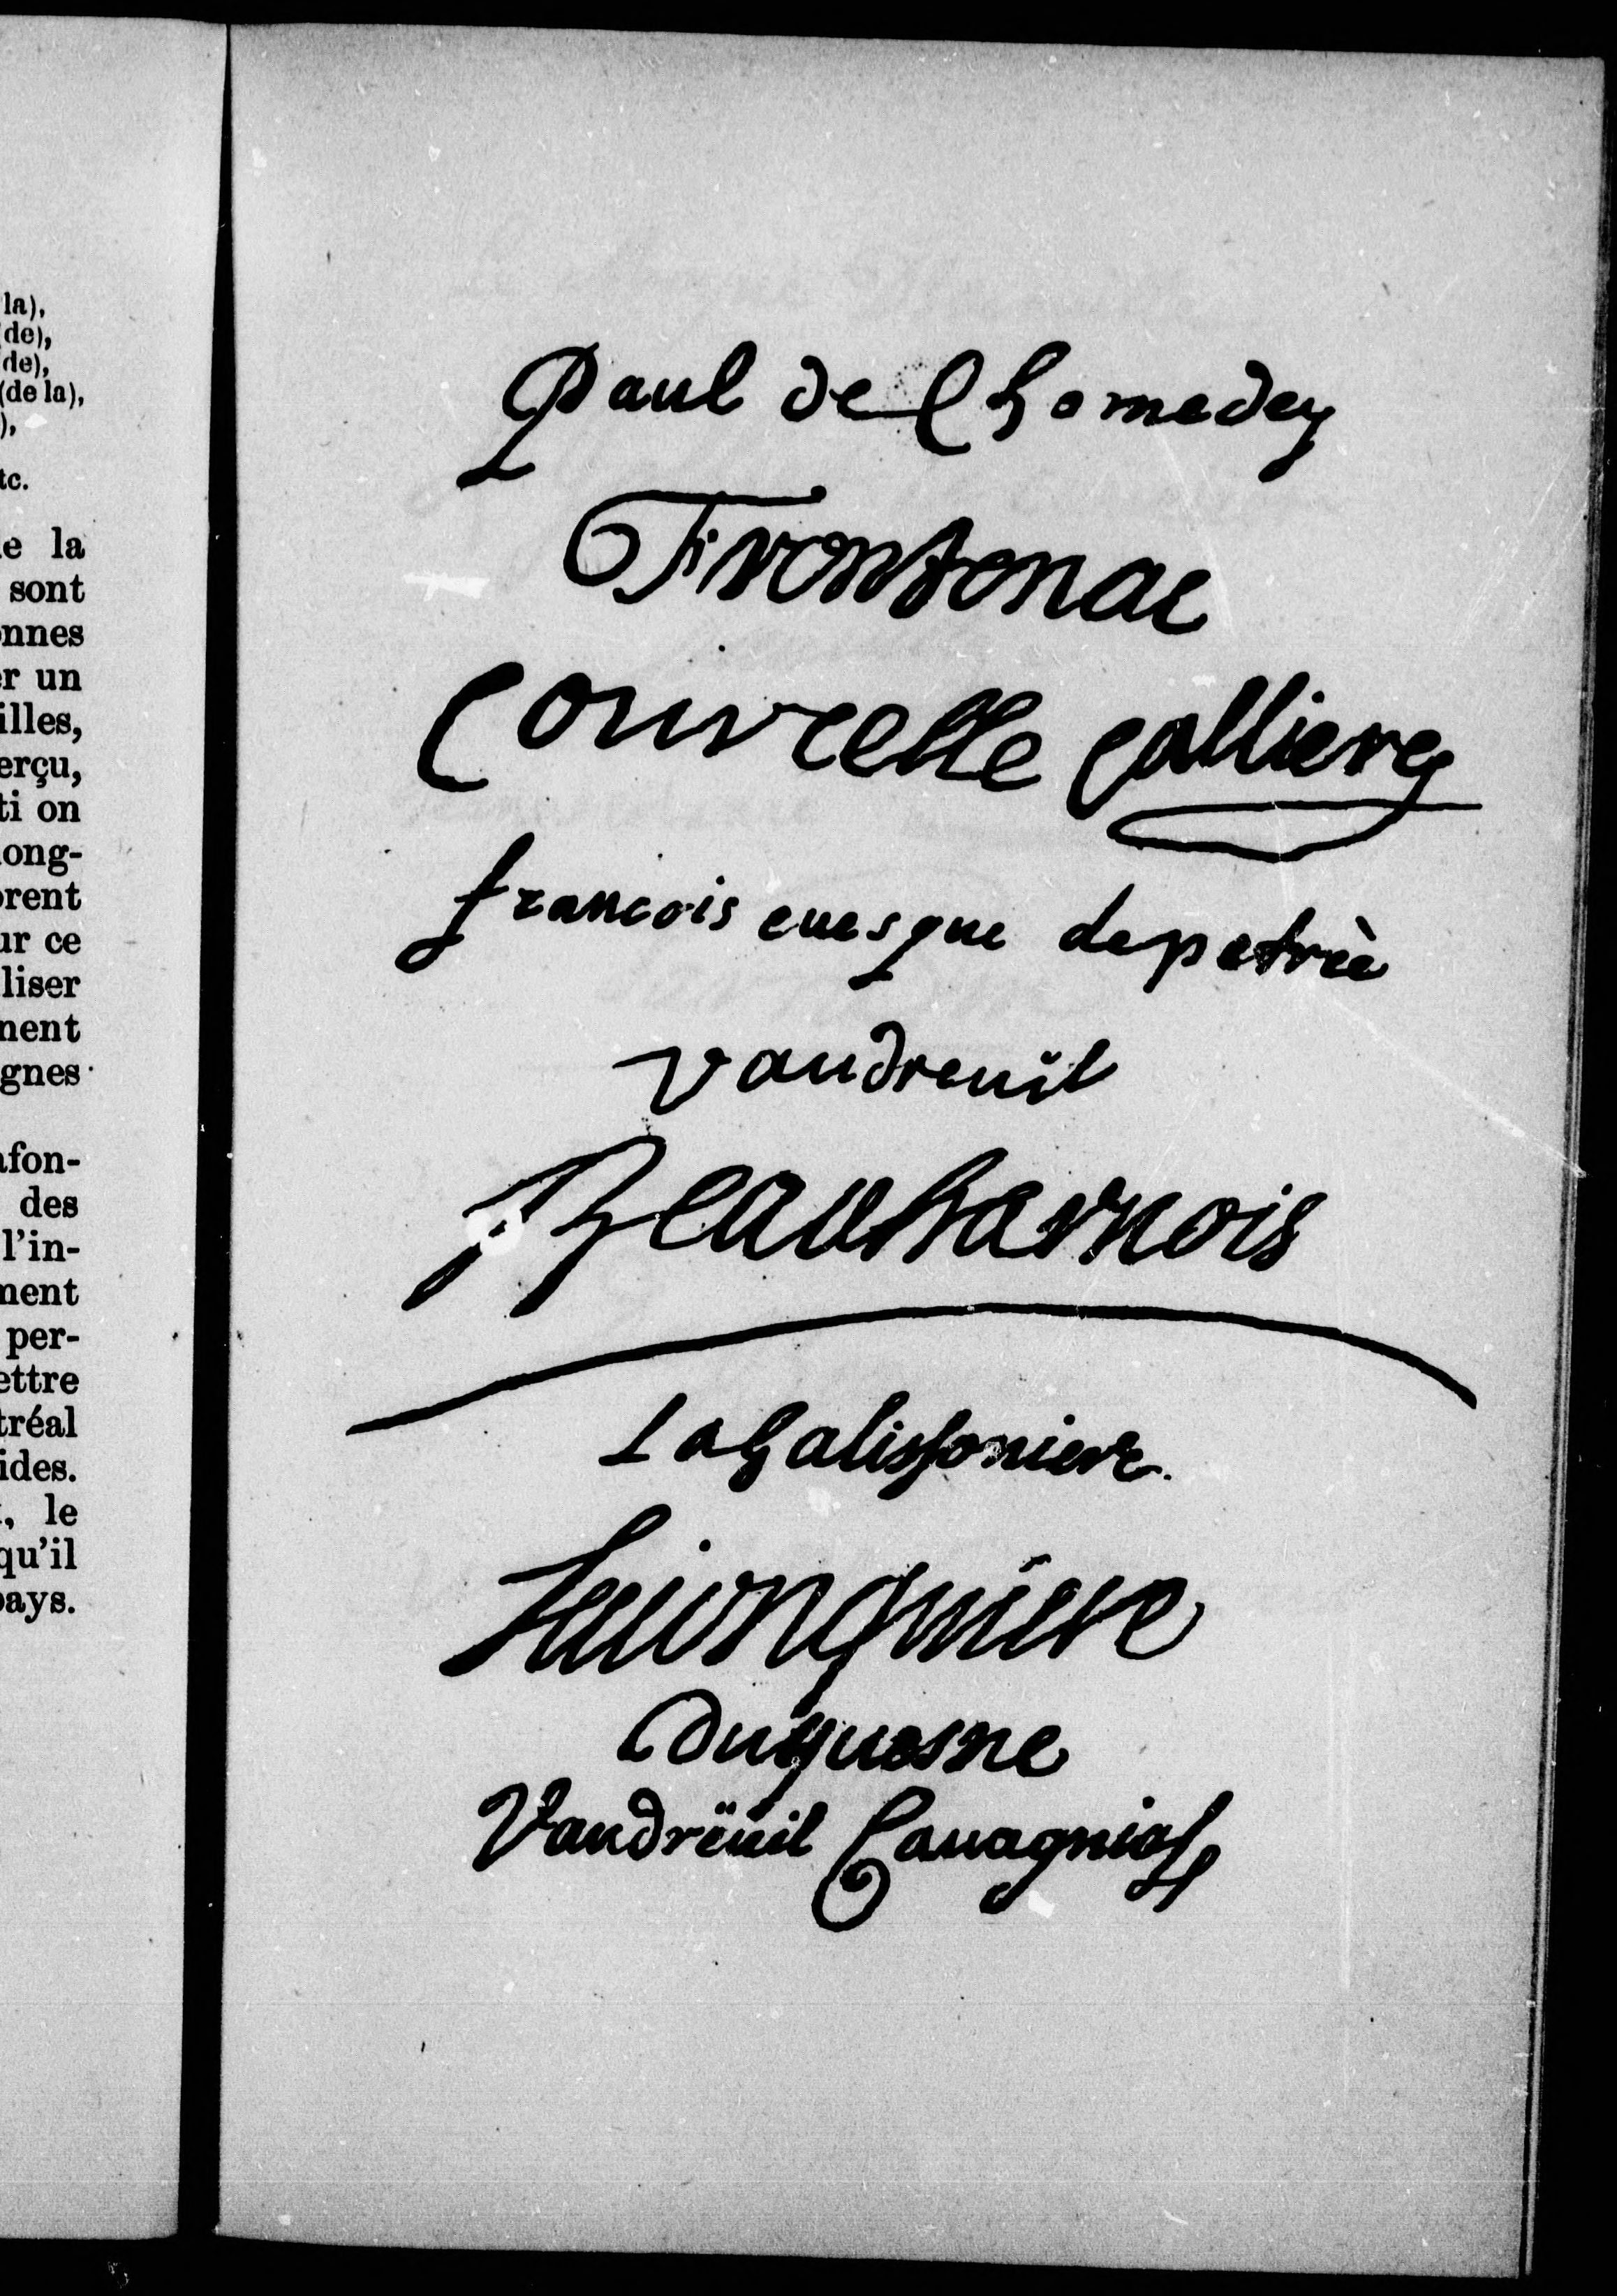 la),
(de),
de),
(de la),
),
tc.
e la
sont
onnes
er un
illes,
erçu,
ti on
long-
orent
ur ce
liser
ment
gnes
afon-
des
l'in-
ment
per-
ettre
tréal
ides.
, le
qu'il
pays.
Paul de Chomedey
Frontenac
Courcelle Callieres
francois euesque de petrèe
Vaudreuil
Beauharnois
LaGalissoniere.
Lajonquiere
Duquesne
Vaudreüil Cauagnial